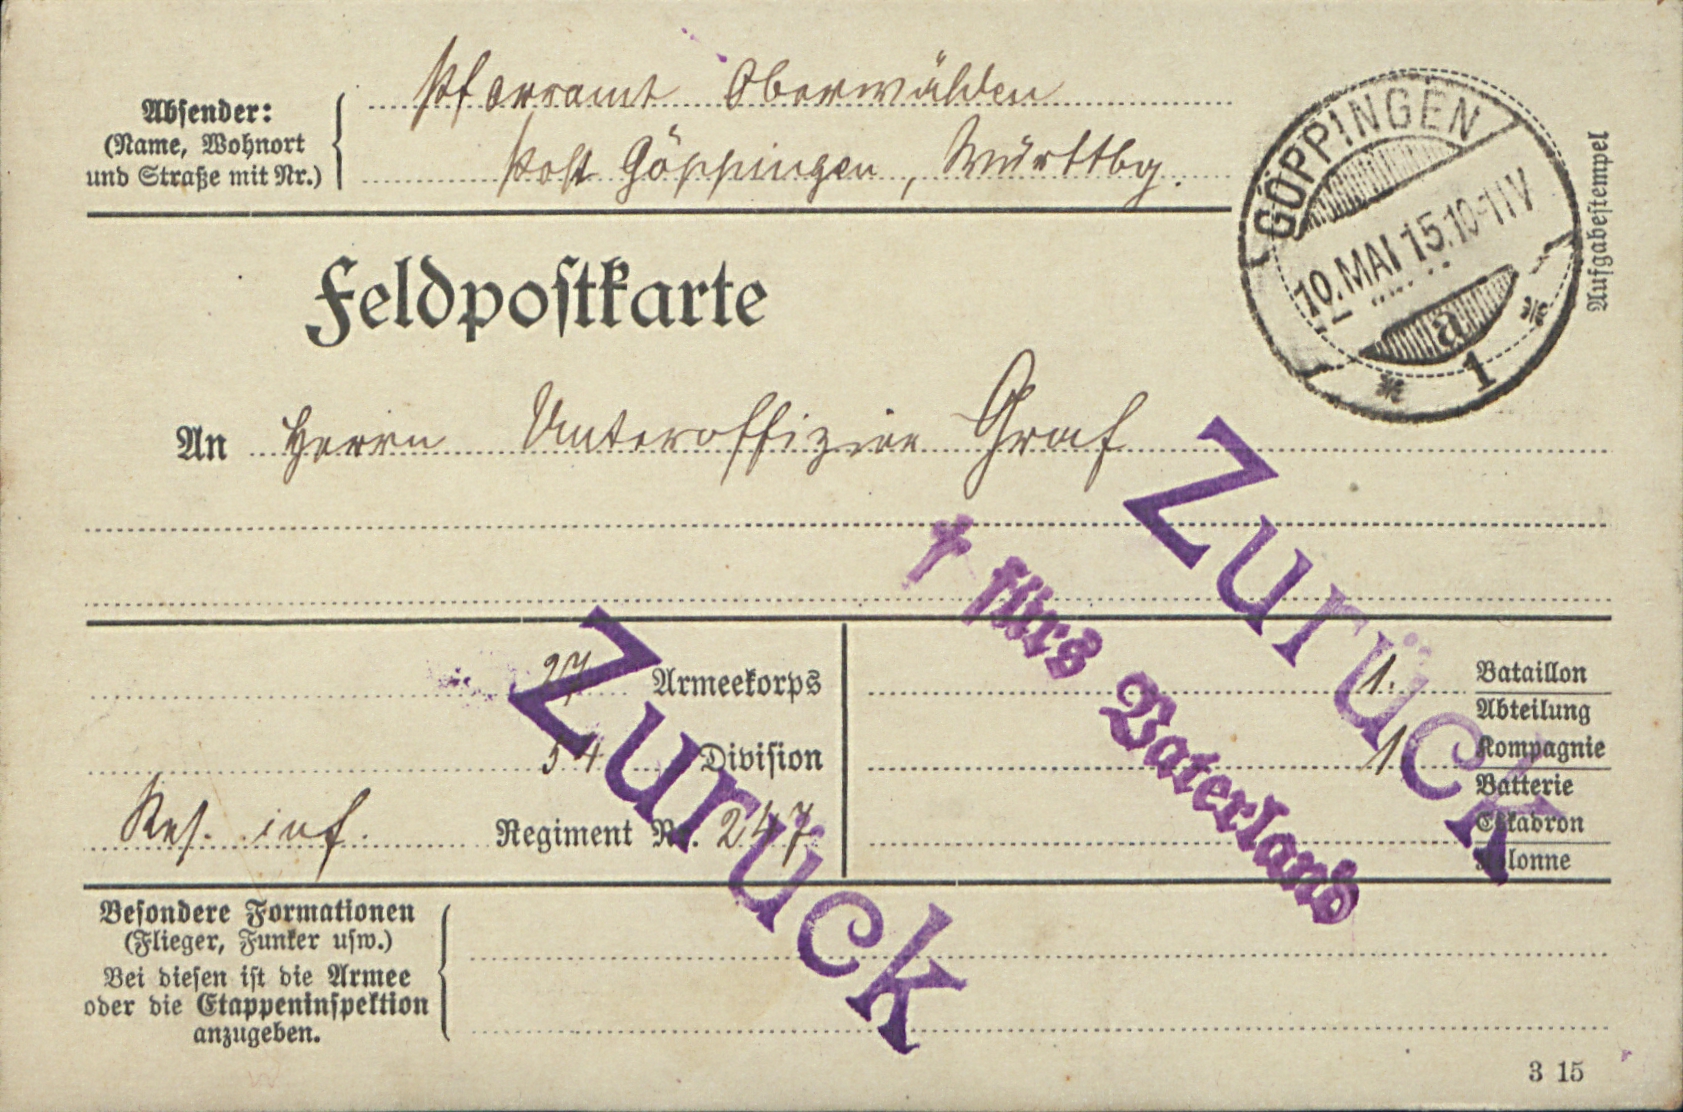 Absender:
(Name, Wohnort
und Straße mit Nr.)
Pfarramt Oberwälden
Post Göppingen, Württbg.
GÖPPINGEN
10. MAI 15. 10-11 V
a
* 1 *
Aufgabestempel
Feldpostkarte
An Herrn Unteroffizier Graf
Zurück
† fürs Vaterland
Zurück
27 Armeekorps
54 Division
Res. inf. Regiment Nr. 247
1. Bataillon
Abteilung
1 Kompagnie
Batterie
Eskadron
Kolonne
Besondere Formationen
(Flieger, Funker usw.)
Bei diesen ist die Armee
oder die Etappeninspektion
anzugeben.
3 15